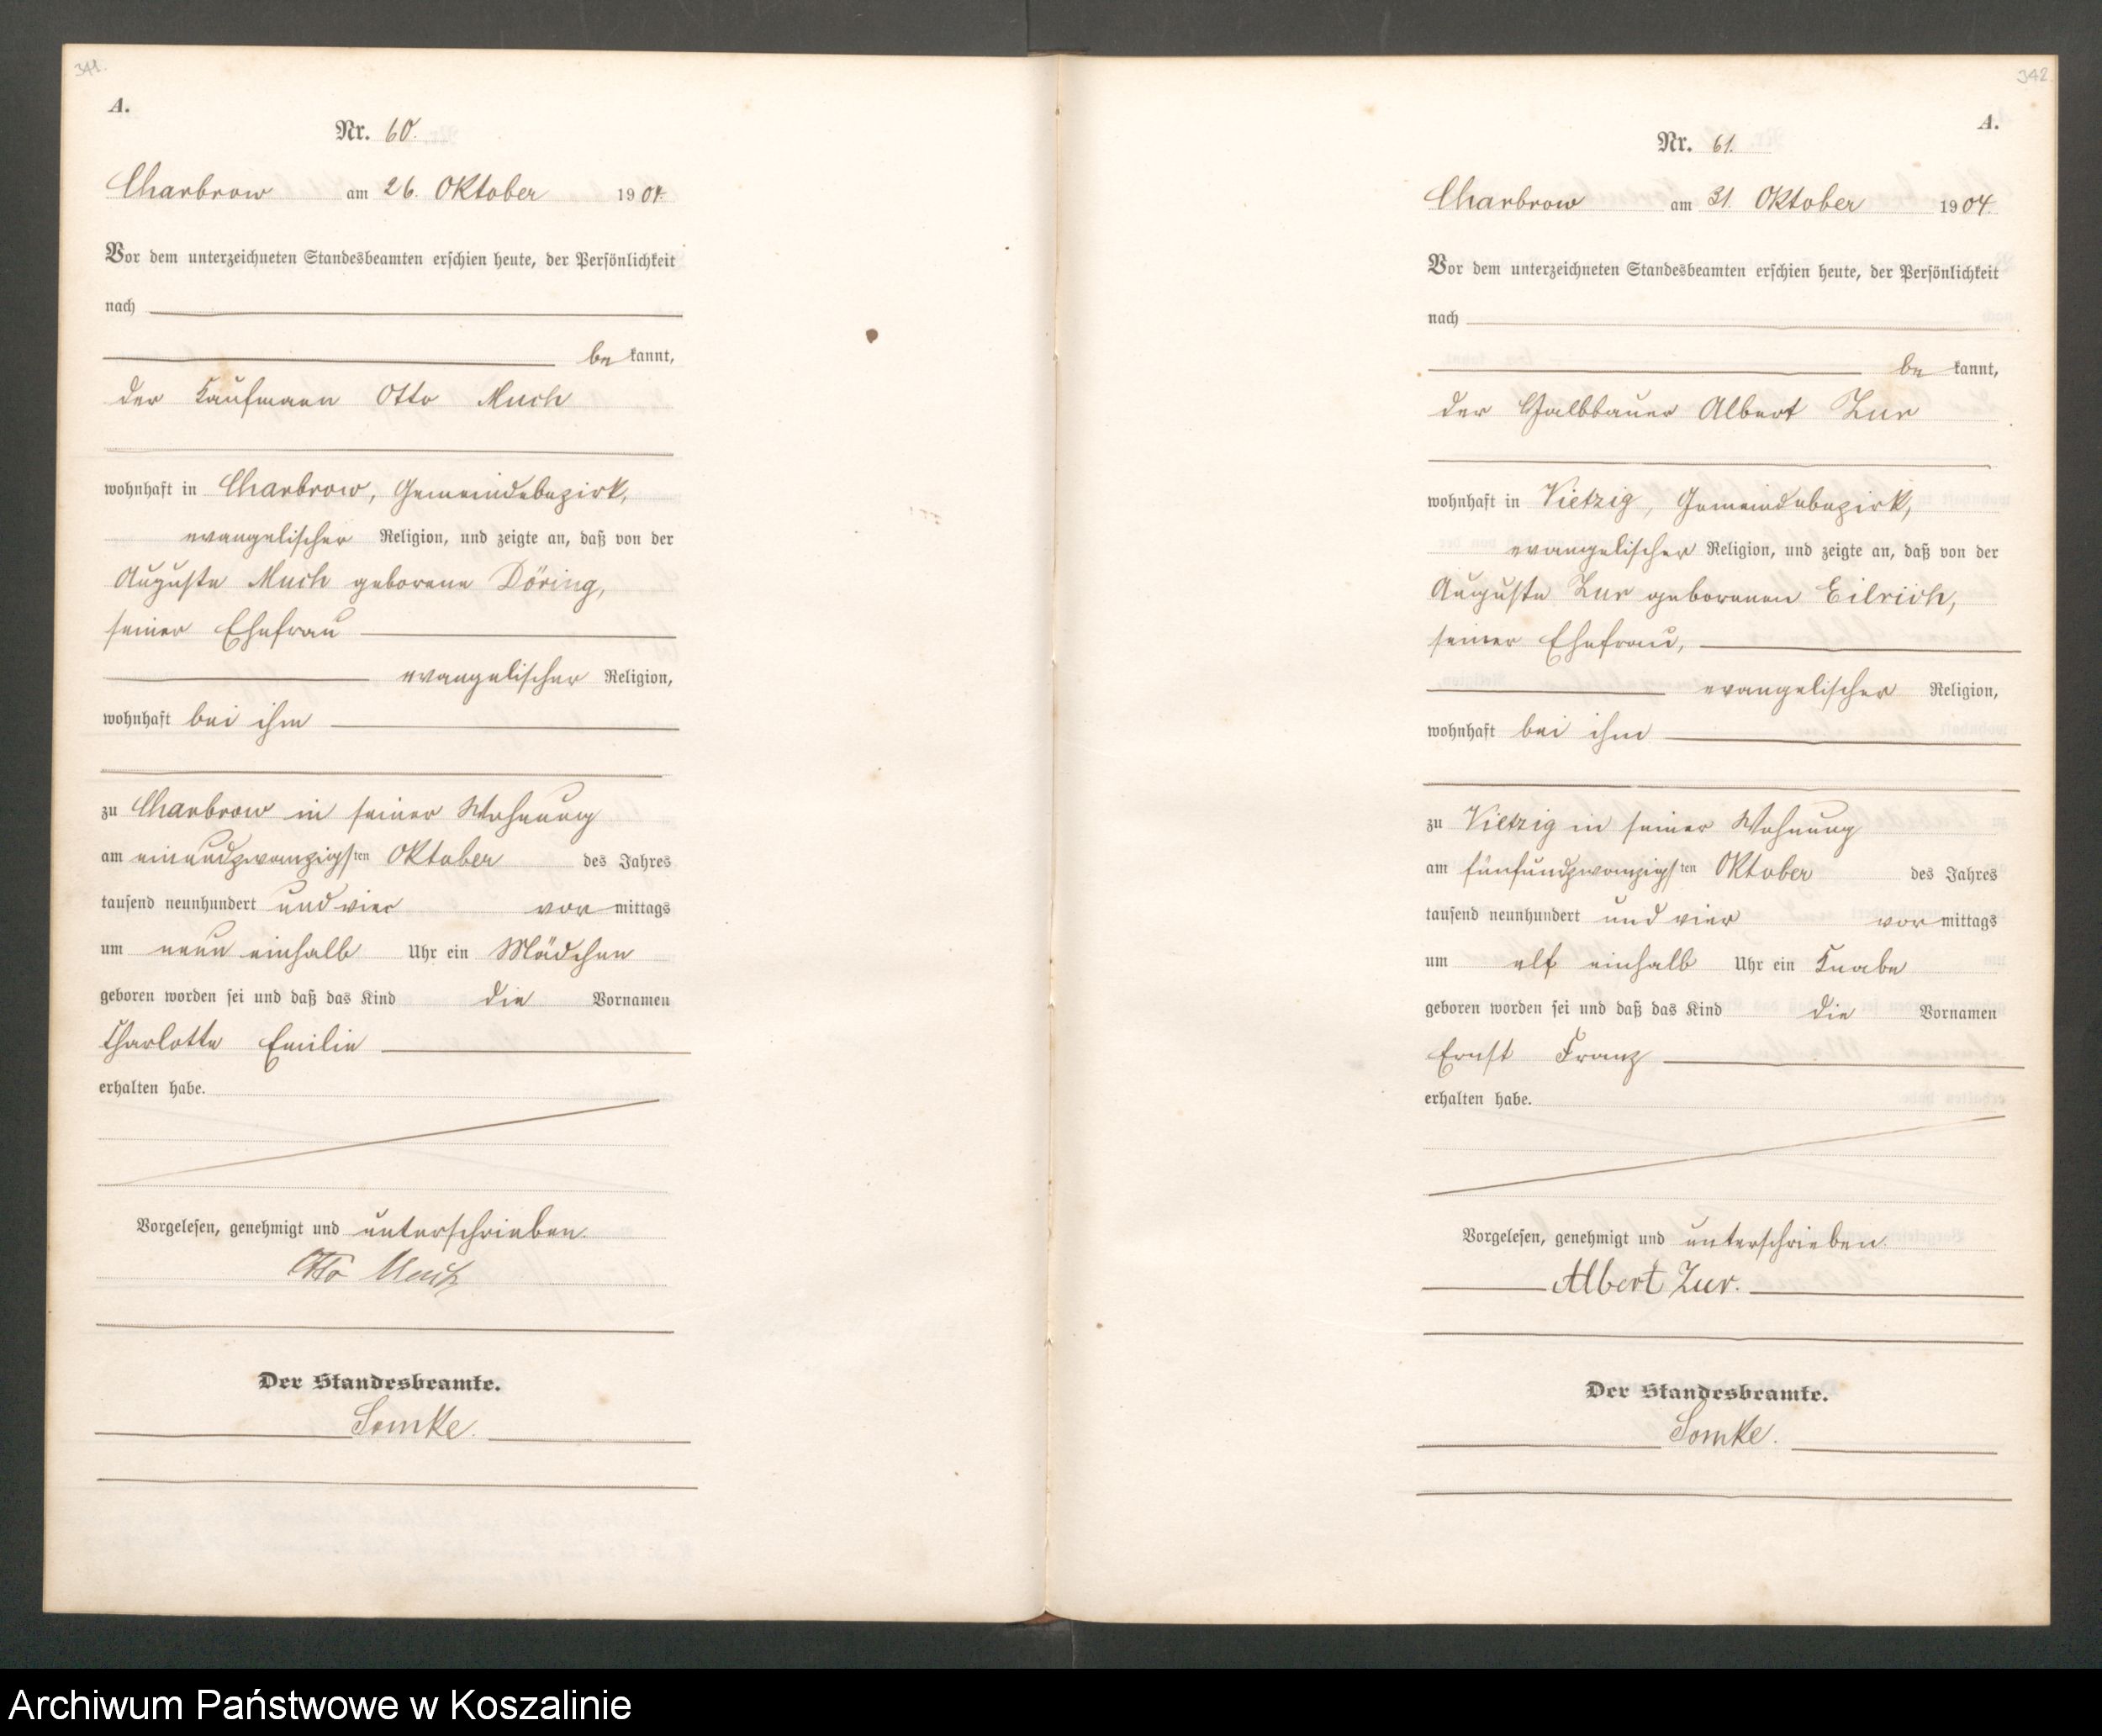 341.
A.
Nr. 60.
Charbrow am 26. Oktober 1904.
Vor dem unterzeichneten Standesbeamten erschien heute, der Persönlichkeit
nach
be kannt,
der Kaufmann Otto Much
wohnhaft in Charbrow, Gemeindebezirk,
evangelischer Religion, und zeigte an, daß von der
Auguste Much geborene Döring,
seiner Ehefrau
evangelischer Religion,
wohnhaft bei ihm
zu Charbrow in seiner Wohnung
am einundzwanzigsten Oktober des Jahres
tausend neunhundert und vier vor mittags
um neun einhalb Uhr ein Mädchen
geboren worden sei und daß das Kind die Vornamen
Charlotte Emilie
erhalten habe.
Vorgelesen, genehmigt und unterschrieben.
Otto Much
Der Standesbeamte.
Somke.
342
A.
Nr. 61.
Charbrow am 31. Oktober 1904.
Vor dem unterzeichneten Standesbeamten erschien heute, der Persönlichkeit
nach
be kannt,
der Halbbauer Albert Zur
wohnhaft in Vietzig, Gemeindebezirk,
evangelischer Religion, und zeigte an, daß von der
Auguste Zur geborenen Eilrich,
seiner Ehefrau,
evangelischer Religion,
wohnhaft bei ihm
zu Vietzig in seiner Wohnung
am fünfundzwanzigsten Oktober des Jahres
tausend neunhundert und vier vor mittags
um elf einhalb Uhr ein Knabe
geboren worden sei und daß das Kind die Vornamen
Ernst Franz
erhalten habe.
Vorgelesen, genehmigt und unterschrieben.
Albert Zur.
Der Standesbeamte.
Somke.
Archiwum Państwowe w Koszalinie